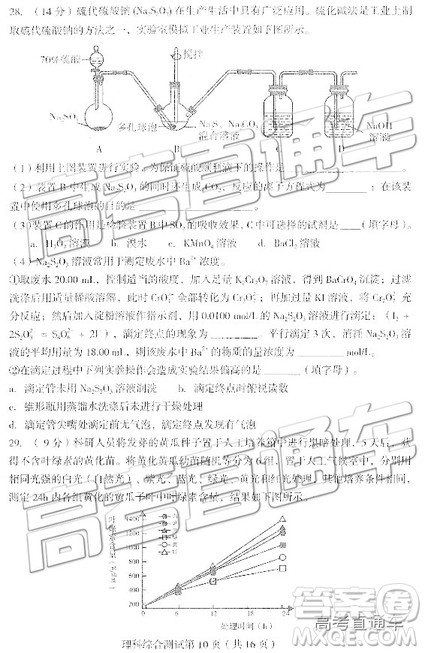 28. (14分) 硫代硫酸钠(Na₂S₂O₃)在生产生活中具有广泛应用。硫化碱法是工业上制
取硫代硫酸钠的方法之一，实验室模拟工业生产装置如下图所示。
70%硫酸
搅拌
Na₂SO₃
多孔球泡
Na₂S、Na₂CO₃
混合溶液
NaOH
溶液
A B C D
(1) 利用上图装置进行实验，为保证硫酸顺利滴下的操作是
(2) 装置B中生成Na₂S₂O₃的同时还生成CO₂，反应的离子方程式为 ；在该装
置中使用多孔球泡的目的是 。
(3) 装置C的作用是检验装置B中SO₂的吸收效果，C中可选择的试剂是 (填字母)。
a. H₂O₂溶液 b. 溴水 c. KMnO₄溶液 d. BaCl₂溶液
(4) Na₂S₂O₃溶液常用于测定废水中Ba²⁺的浓度。
①取废水20.00 mL，控制适当的酸度，加入足量K₂Cr₂O₇溶液，得到BaCrO₄沉淀；过滤
洗涤后用适量稀硫酸溶解，此时CrO₄²⁻全部转化为Cr₂O₇²⁻；再加过量KI溶液，将Cr₂O₇²⁻充
分反应；然后加入淀粉溶液作指示剂，用0.0100 mol/L的Na₂S₂O₃溶液进行滴定：(I₂ +
2S₂O₃²⁻ = S₄O₆²⁻ + 2I⁻)，滴定终点的现象为 。平行滴定3次，消耗Na₂S₂O₃溶
液的平均用量为18.00 mL，则该废水中Ba²⁺的物质的量浓度为 mol/L。
②在滴定过程中下列实验操作会造成实验结果偏高的是 (填字母)。
a. 滴定管未用Na₂S₂O₃溶液润洗 b. 滴定终点时俯视读数
c. 锥形瓶用蒸馏水洗涤后未进行干燥处理
d. 滴定管尖嘴处滴定前无气泡，滴定终点发现有气泡
29. (9分) 科研人员将发芽的黄瓜种子置于人工培养箱中进行黑暗处理，5天后，获
得不含叶绿素的黄化苗。将黄化黄瓜幼苗随机均分为6组，置于人工气候室中，分别用
相同光强的白光(自然光)、红光、蓝光、绿光、黄光和红光处理，其他培养条件相同，
测定24h内各组黄化的黄瓜子叶中叶绿素含量，结果如下图所示。
1400
1200
1000
800
600
400
200
0 6 12 24
处理时间(h)
理科综合测试第10页(共16页)
高考直通车
高考直通车
高考直通车
答案圈
MXQE.COM